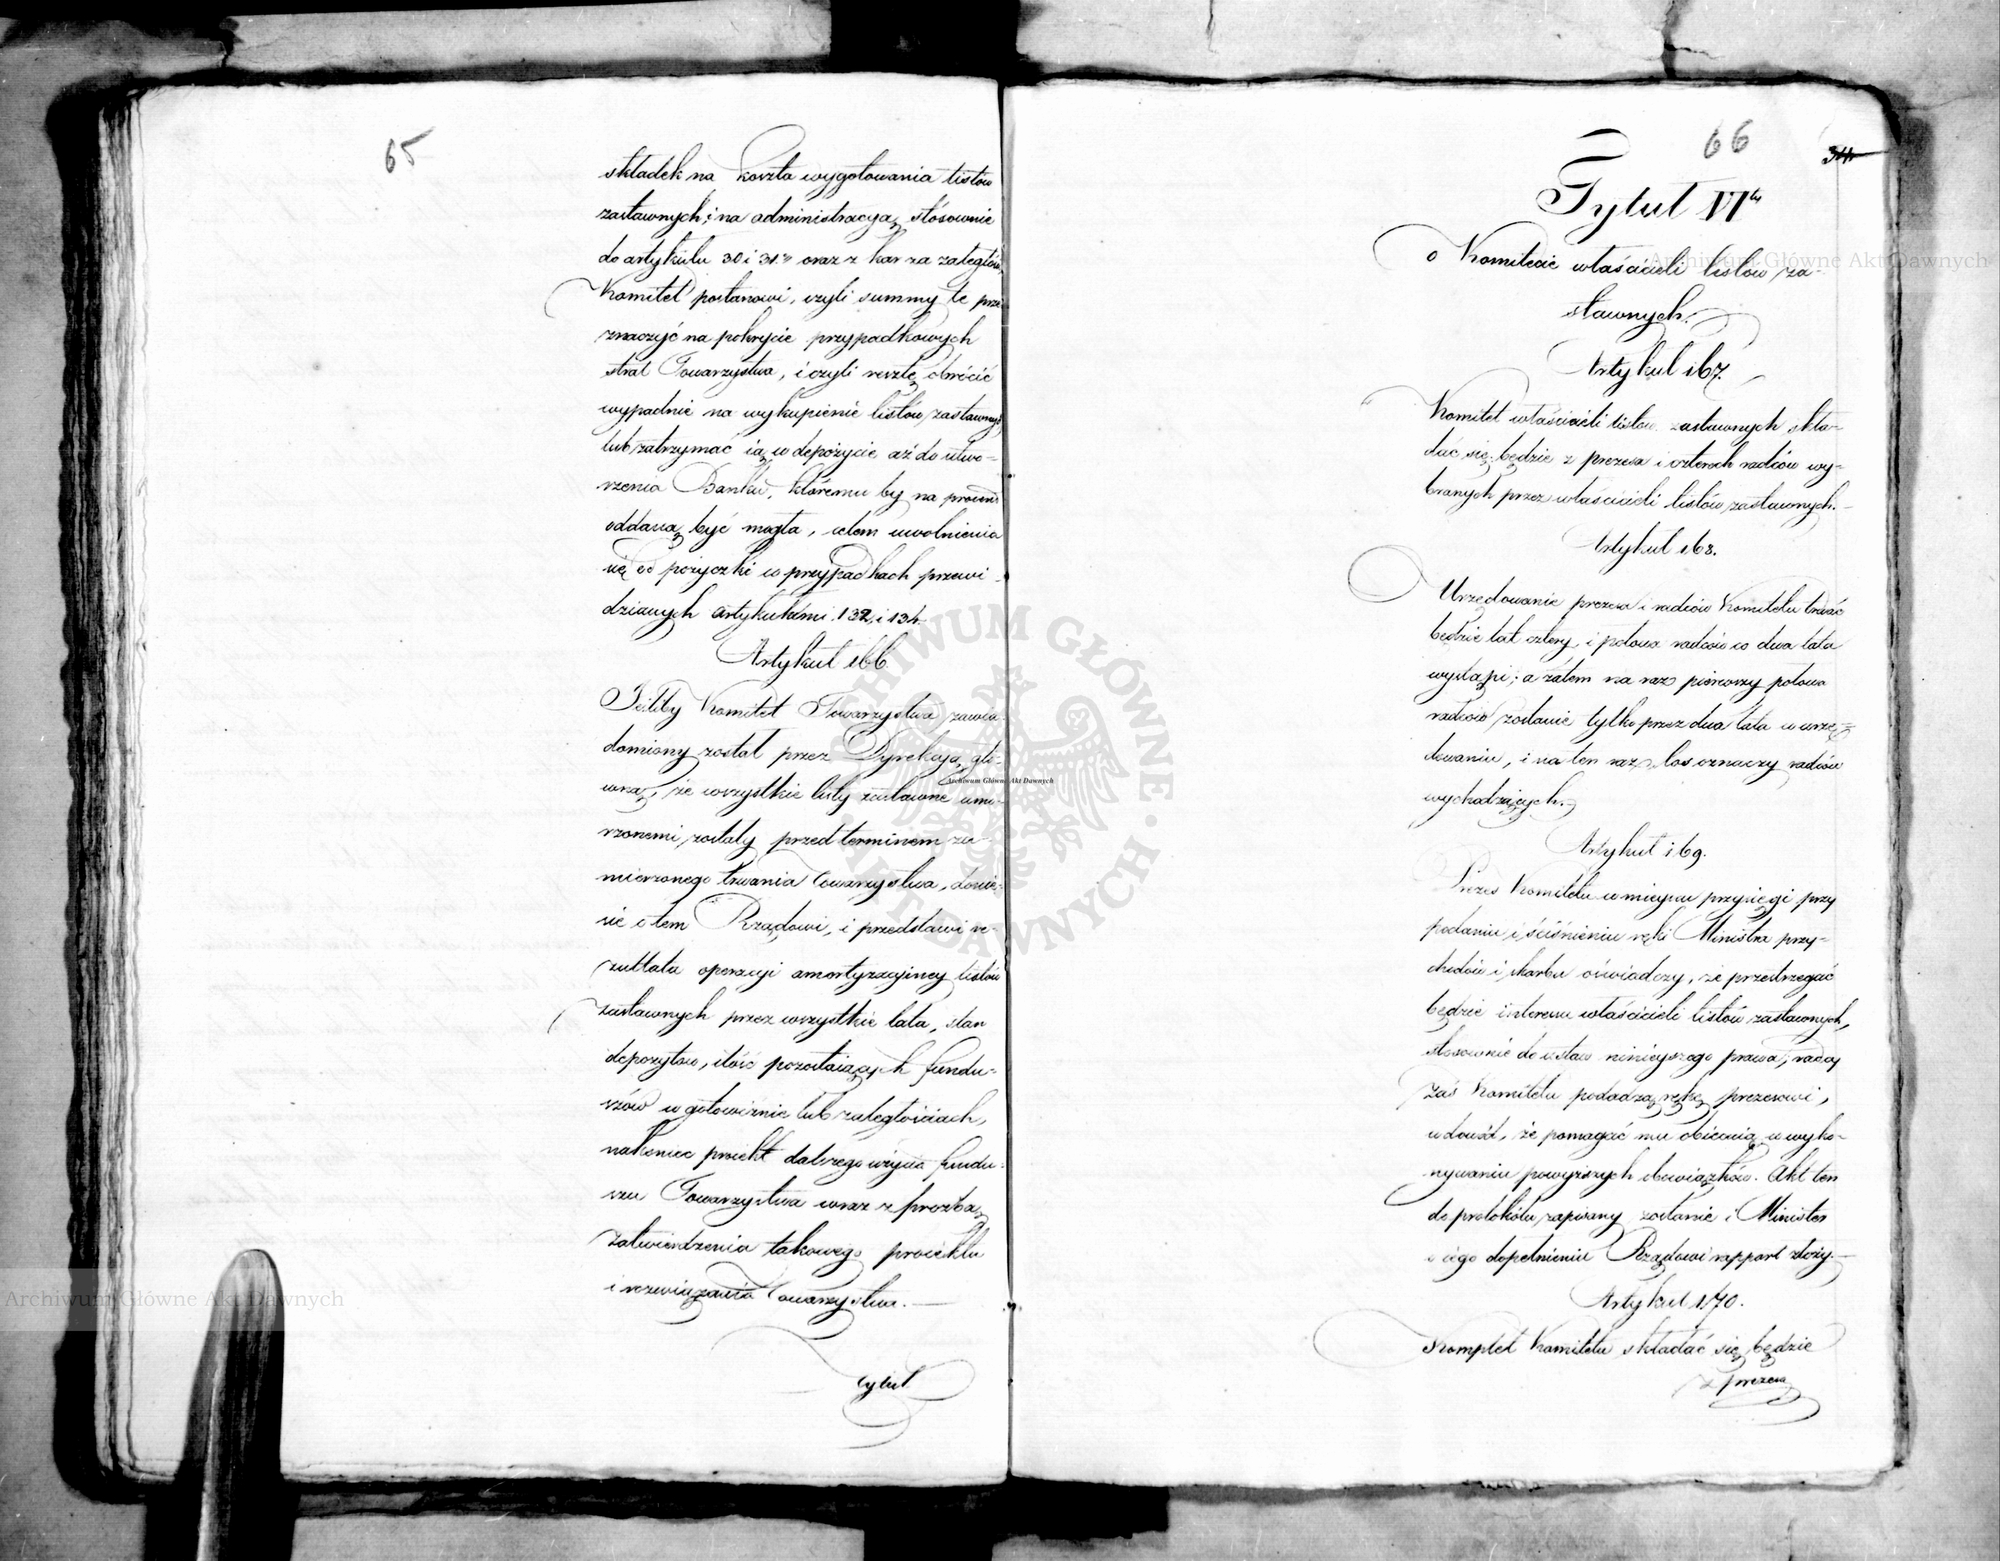 65
składek na koszta wygotowania listów
zastawnych, i na administracyą stósownie
do artykułu 30 i 31go oraz z kar za zaległość
Komitet postanowi, czyli summy te prze
znaczyć na pokrycie przypadkowych
strat Towarzystwa, i czyli resztę obrócić
wypadnie na wykupienie listów zastawnych
lub zatrzymać ią w depozycie aż do utwo-
rzenia Banku, któremu by na procent
oddaną być mogła, celem uwolnienia
się od pożyczki w przypadkach przewi-
dzianych artykułami 132, i 134.
Artykuł 166.
Jeśliby Komitet Towarzystwa zawia-
domiony został przez Dyrekcyą głó-
wną, że wszystkie listy zastawne umo-
rzonemi zostały przed terminem za-
mierzonego trwania Towarzystwa, donie-
sie o tem Rządowi, i przedstawi re-
zultata operacyi amortyzacyiney listów
zastawnych przez wszystkie lata, stan
depozytów, ilość pozostaiących fundu-
szów w gotowiznie lub zaległościach,
nakoniec proiekt dalszego użycia fundu-
szu Towarzystwa wraz z prozbą
zatwierdzenia takowego proiektu
i rozwiązania Towarzystwa.
Tytuł
66
34
Tytuł VIty
o Komitecie właścicieli listów za-
stawnych.
Artykuł 167.
Komitet właścicieli listów zastawnych skła-
dać się będzie z prezesa i czterech radców wy-
branych przez właścicieli listów zastawnych.
Artykuł 168.
Urzędowanie prezesa i radców Komitetu trwać
będzie lat cztery, i połowa radców co dwa lata
wystąpi; a zatem na raz pierwszy połowa
radców zostanie tylko przez dwa lata w urzę-
dowaniu, i na ten raz los oznaczy radców
wychodzących.
Artykuł 169.
Prezes Komitetu w mieysu przysięgi przy
podaniu i ściśnieniu ręki Ministra przy-
chodów i skarbu oświadczy, że przestrzegać
będzie interessu właścicieli listów zastawnych,
stosownie do ustaw ninieyszego prawa; radcy
zaś Komitetu podadzą rękę prezesowi,
w dowód, że pomagać mu obiecuią w wyko-
nywaniu powyższych obowiązków. Akt ten
do protokółu zapisany zostanie i Minister
o iego dopełnieniu Rządowi rapport złoży.
Artykuł 170.
Komplet Komitetu składać się będzie
z prezesa
Archiwum Główne Akt Dawnych
Archiwum Główne Akt Dawnych
Archiwum Główne Akt Dawnych
ARCHIWUM GŁÓWNE · AKT DAWNYCH ·